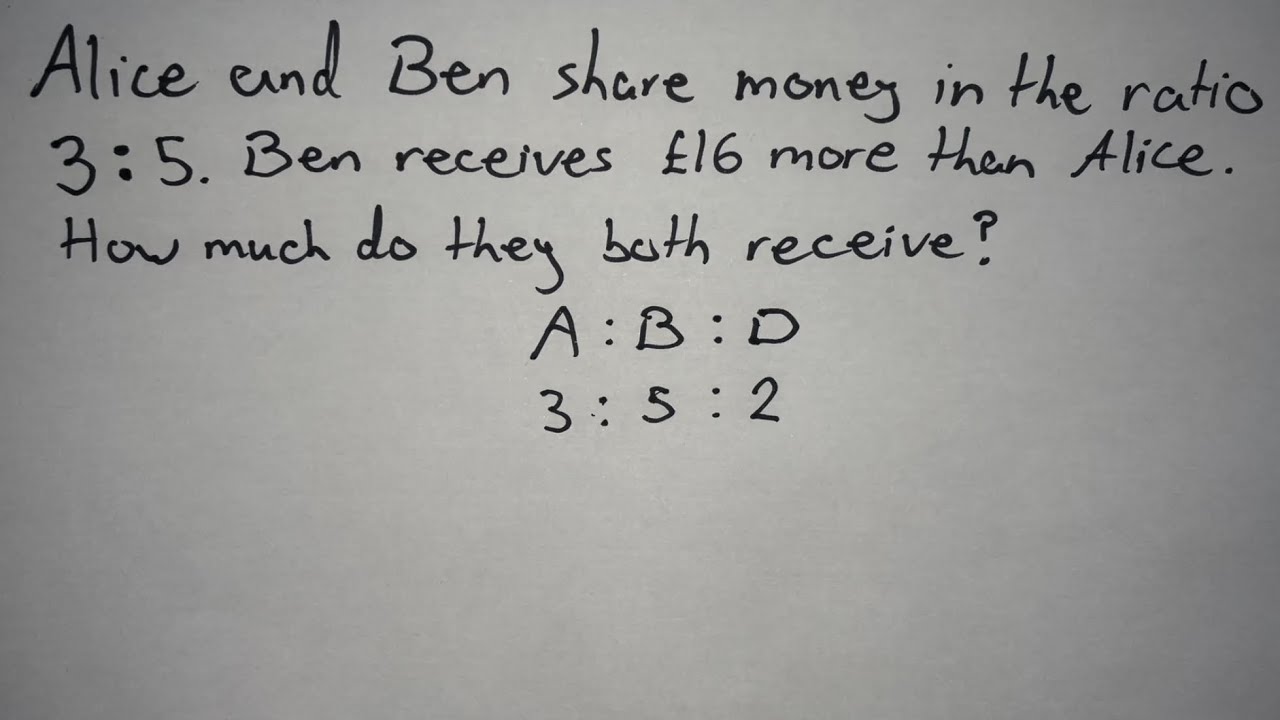 Alice and Ben share money in the ratio
3:5. Ben receives £16 more than Alice.
How much do they both receive?
A : B : D
3 : 5 : 2